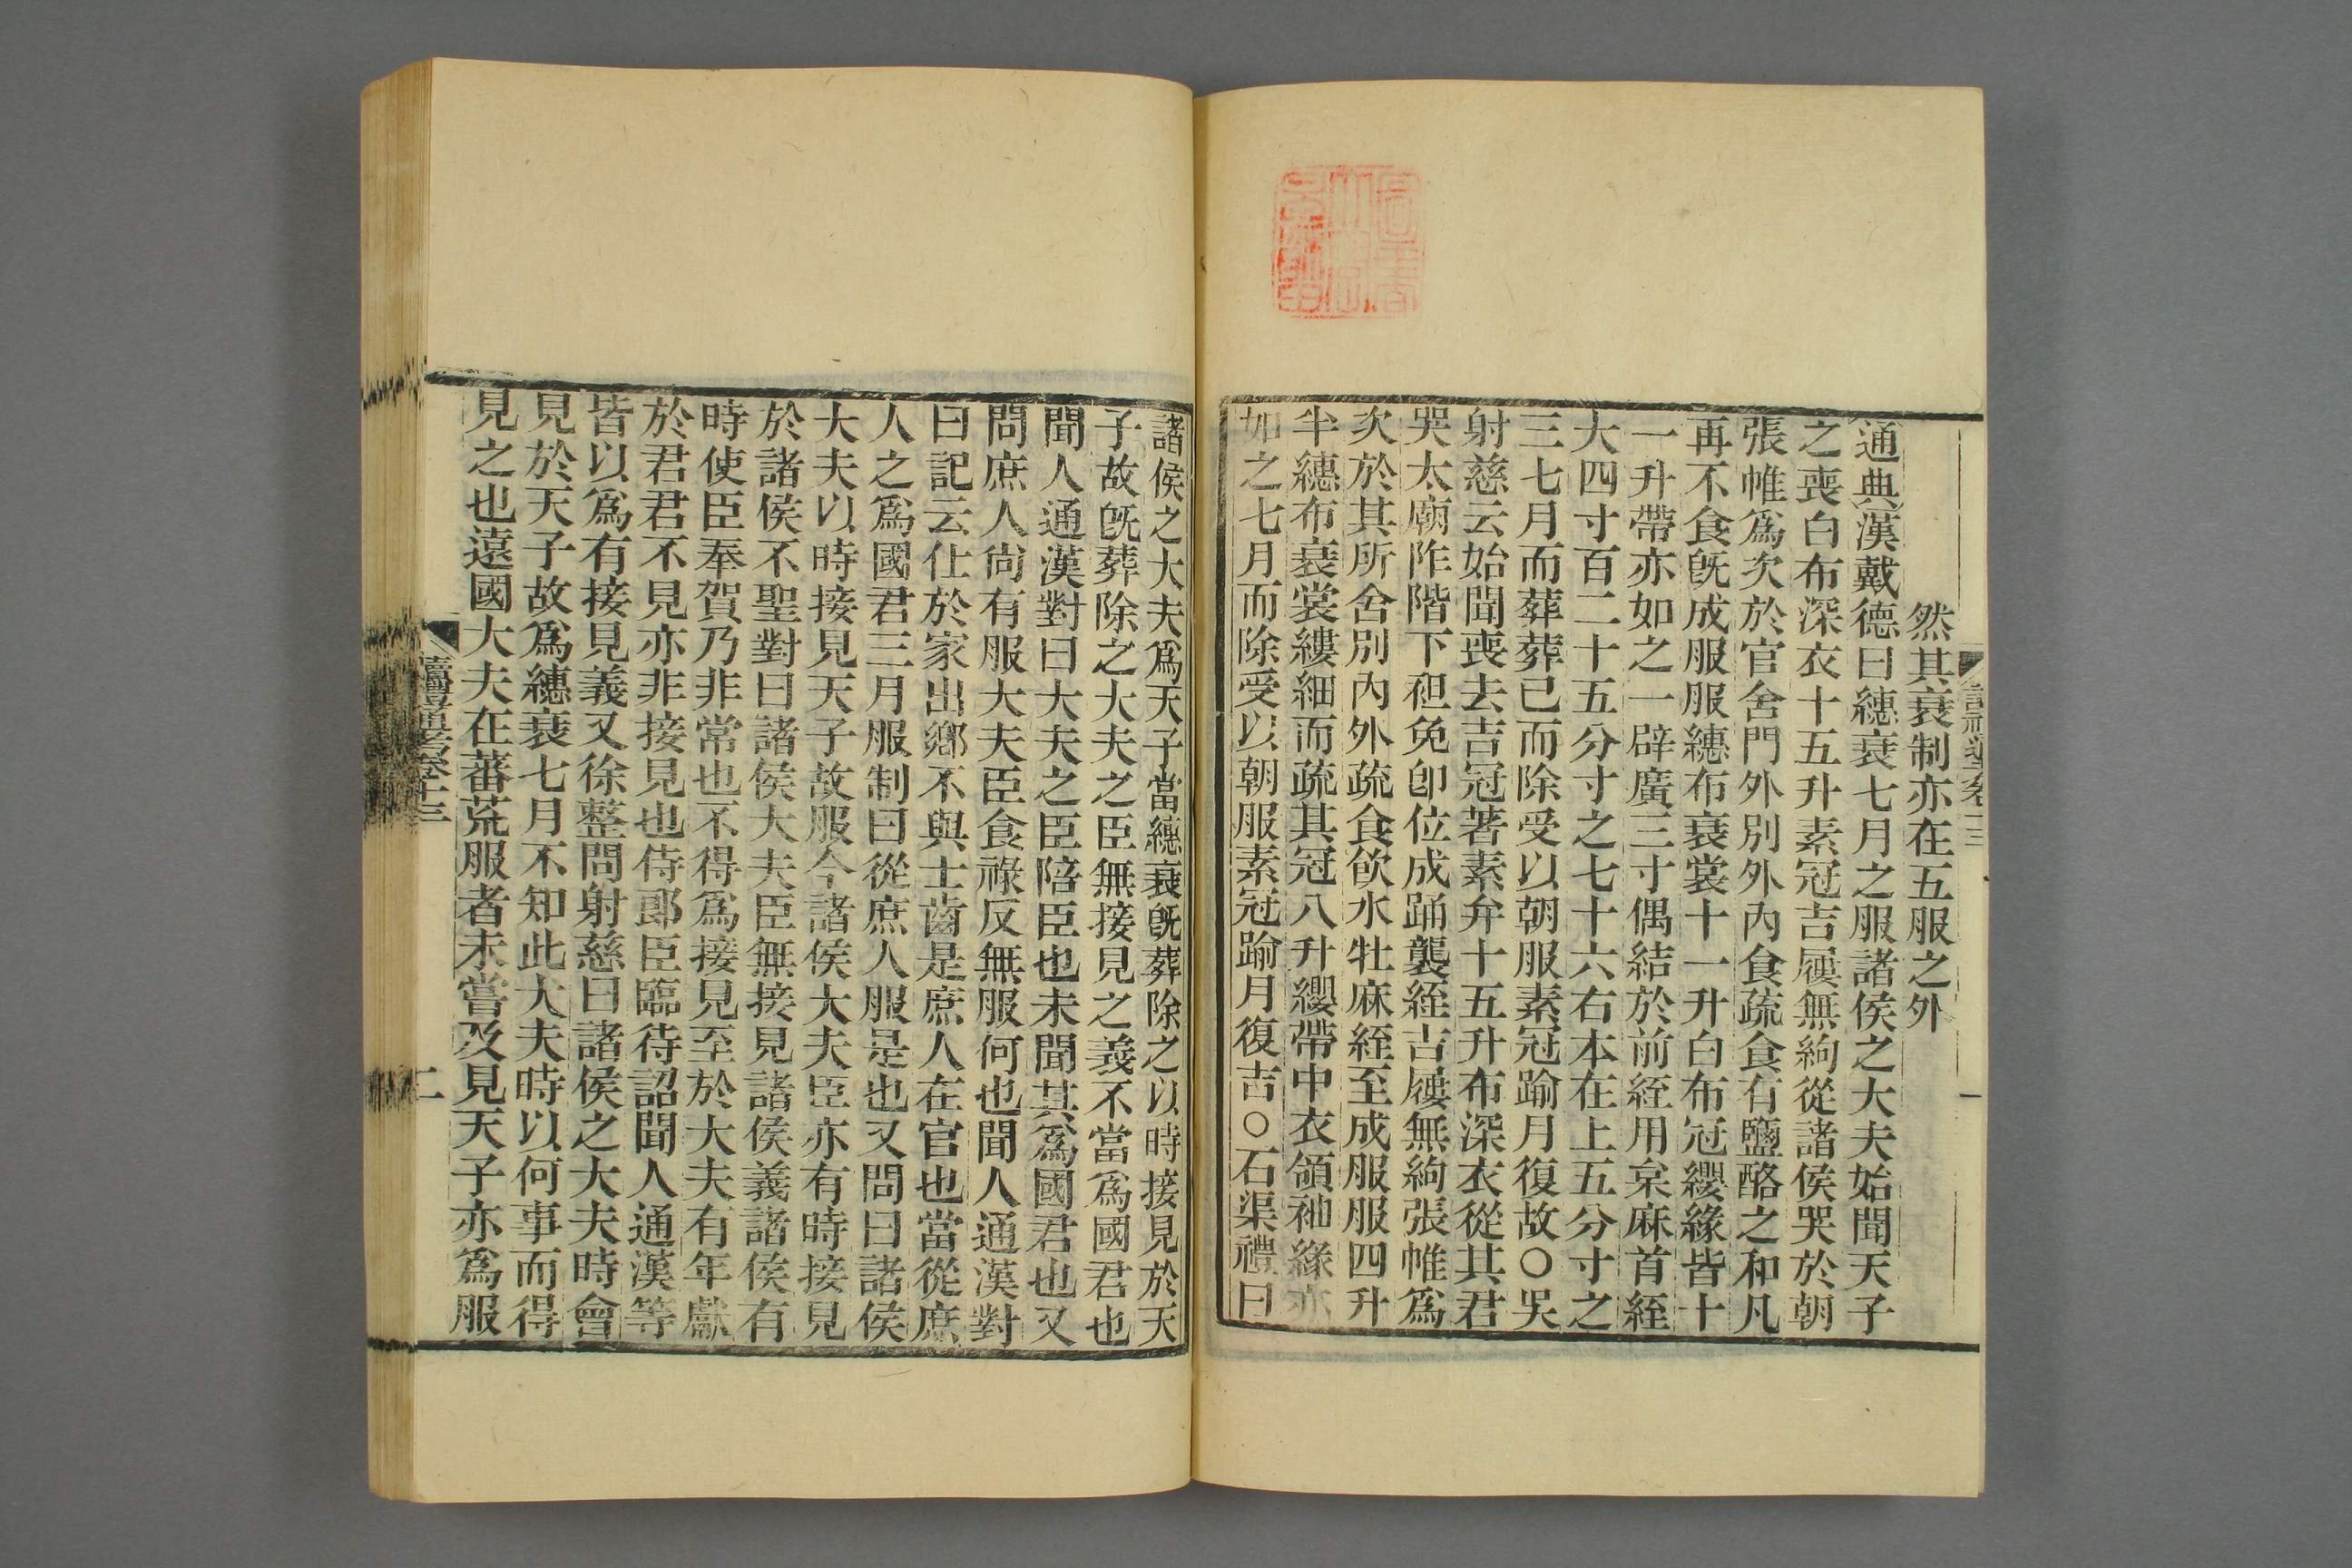 然其衰制亦在五服之外
通典漢戴德曰繐衰七月之服諸侯之大夫始聞天子
之喪白布深衣十五升素冠吉屨無絇從諸侯哭於朝
張帷爲次於官舍門外別外內食疏食有鹽酪之和凡
再不食旣成服服繐布衰裳十一升白布冠纓緣皆十
一升帶亦如之一辟廣三寸偶結於前絰用枲麻首絰
大四寸百二十五分寸之七十六右本在上五分寸之
三七月而葬葬已而除受以朝服素冠踰月復故○吳
射慈云始聞喪去吉冠著素弁十五升布深衣從其君
哭太廟阼階下袒免卽位成踊襲絰吉屨無絇張帷爲
次於其所舍別內外疏食飮水牡麻絰至成服服四升
半繐布衰裳縷細而疏其冠八升纓帶中衣領袖緣亦
如之七月而除受以朝服素冠踰月復吉○石渠禮曰
諸侯之大夫爲天子當繐衰旣葬除之以時接見於天
子故旣葬除之大夫之臣無接見之義不當爲國君也
聞人通漢對曰大夫之臣陪臣也未聞其爲國君也又
問庶人尙有服大夫臣食祿反無服何也聞人通漢對
曰記云仕於家出鄉不與士齒是庶人在官也當從庶
人之爲國君三月服制曰從庶人服是也又問曰諸侯
大夫以時接見天子故服今諸侯大夫臣亦有時接見
於諸侯不聖對曰諸侯大夫臣無接見諸侯義諸侯有
時使臣奉賀乃非常也不得爲接見至於大夫有年獻
於君君不見亦非接見也侍郎臣臨待詔聞人通漢等
皆以爲有接見義又徐整問射慈曰諸侯之大夫時會
見於天子故爲繐衰七月不知此大夫時以何事而得
見之也遠國大夫在蕃荒服者未嘗及見天子亦爲服
讀禮通考卷十三
二